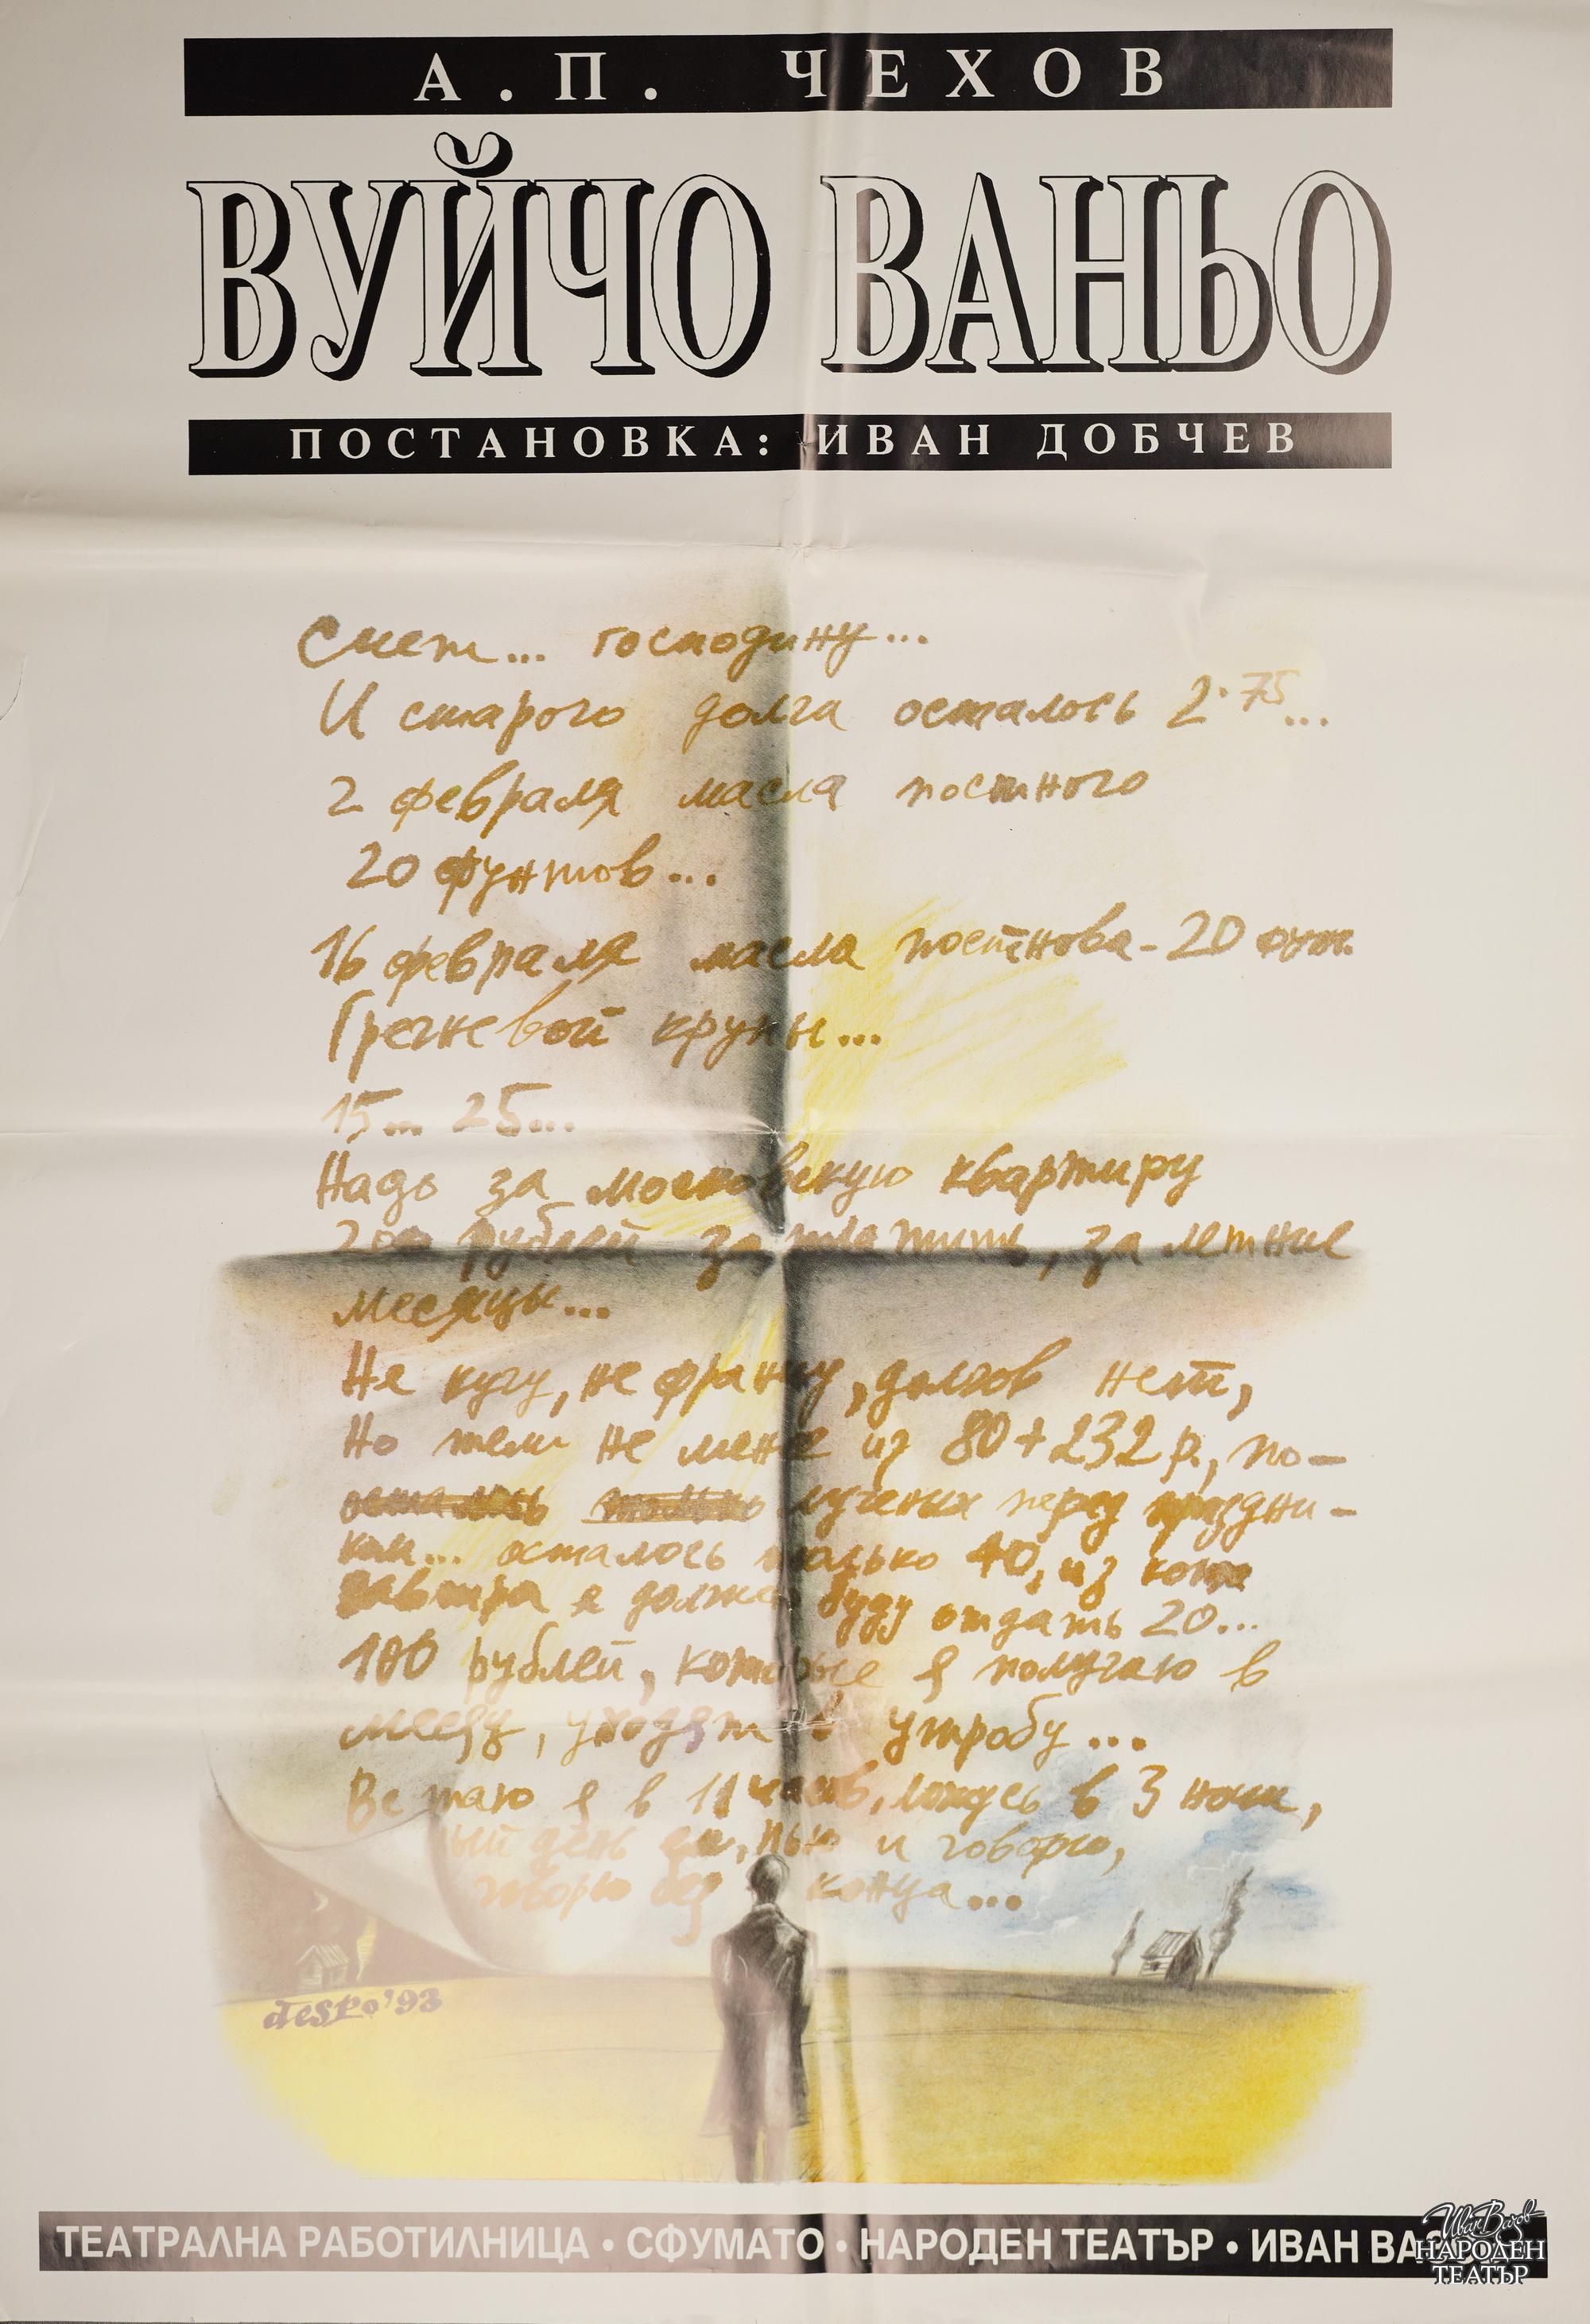 А. П. ЧЕХОВ
ВУЙЧО ВАНЬО
ПОСТАНОВКА: ИВАН ДОБЧЕВ
Счет... господину...
И старого долга осталось 2.75...
2 февраля масла постного
20 фунтов...
16 февраля масла постнова - 20 фун.
Гречневой крупы...
15... 25...
Надо за московскую квартиру
200 рублей заплатить, за летние
месяцы...
Не кучу, не франчу, долгов нет,
Но тем не мене из 80+232 р., по-
осталось только лученых перед праздни-
ком... осталось только 40, из
завтра я должен буду отдать 20...
100 рублей, которые я получаю в
месяц, уходят в утробу...
Встаю я в 11 часов, ложусь в 3 ночи,
ый день ем, пью и говорю,
говорю без конца...
desko'93
ТЕАТРАЛНА РАБОТИЛНИЦА • СФУМАТО • НАРОДЕН ТЕАТЪР • ИВАН
Иван Вазов
НАРОДЕН
ТЕАТЪР